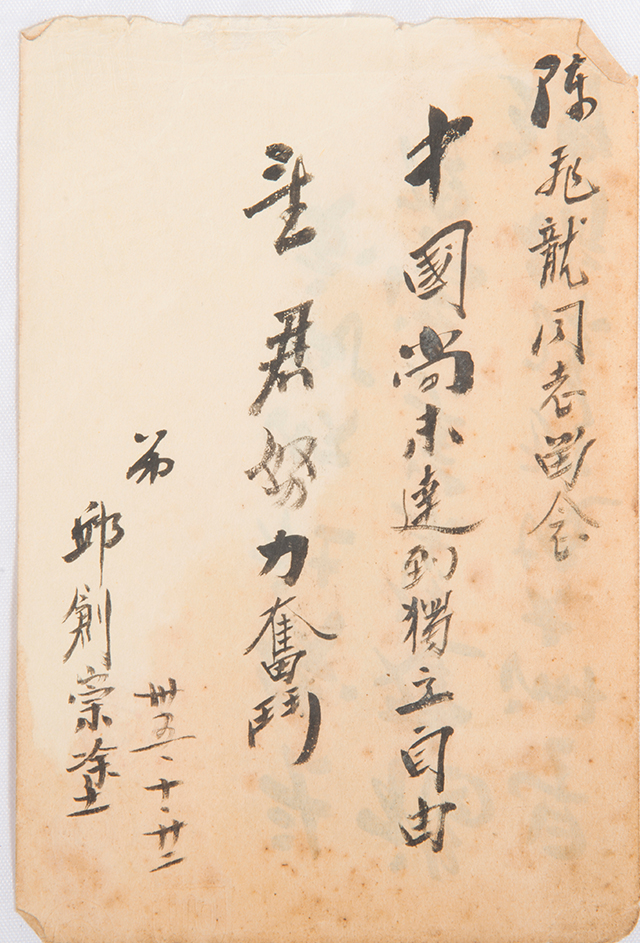 陈飛龍同志留念
中國尚未達到獨立自由
望君努力奮鬥
弟
邱創宗塗
卅五·十·廿二